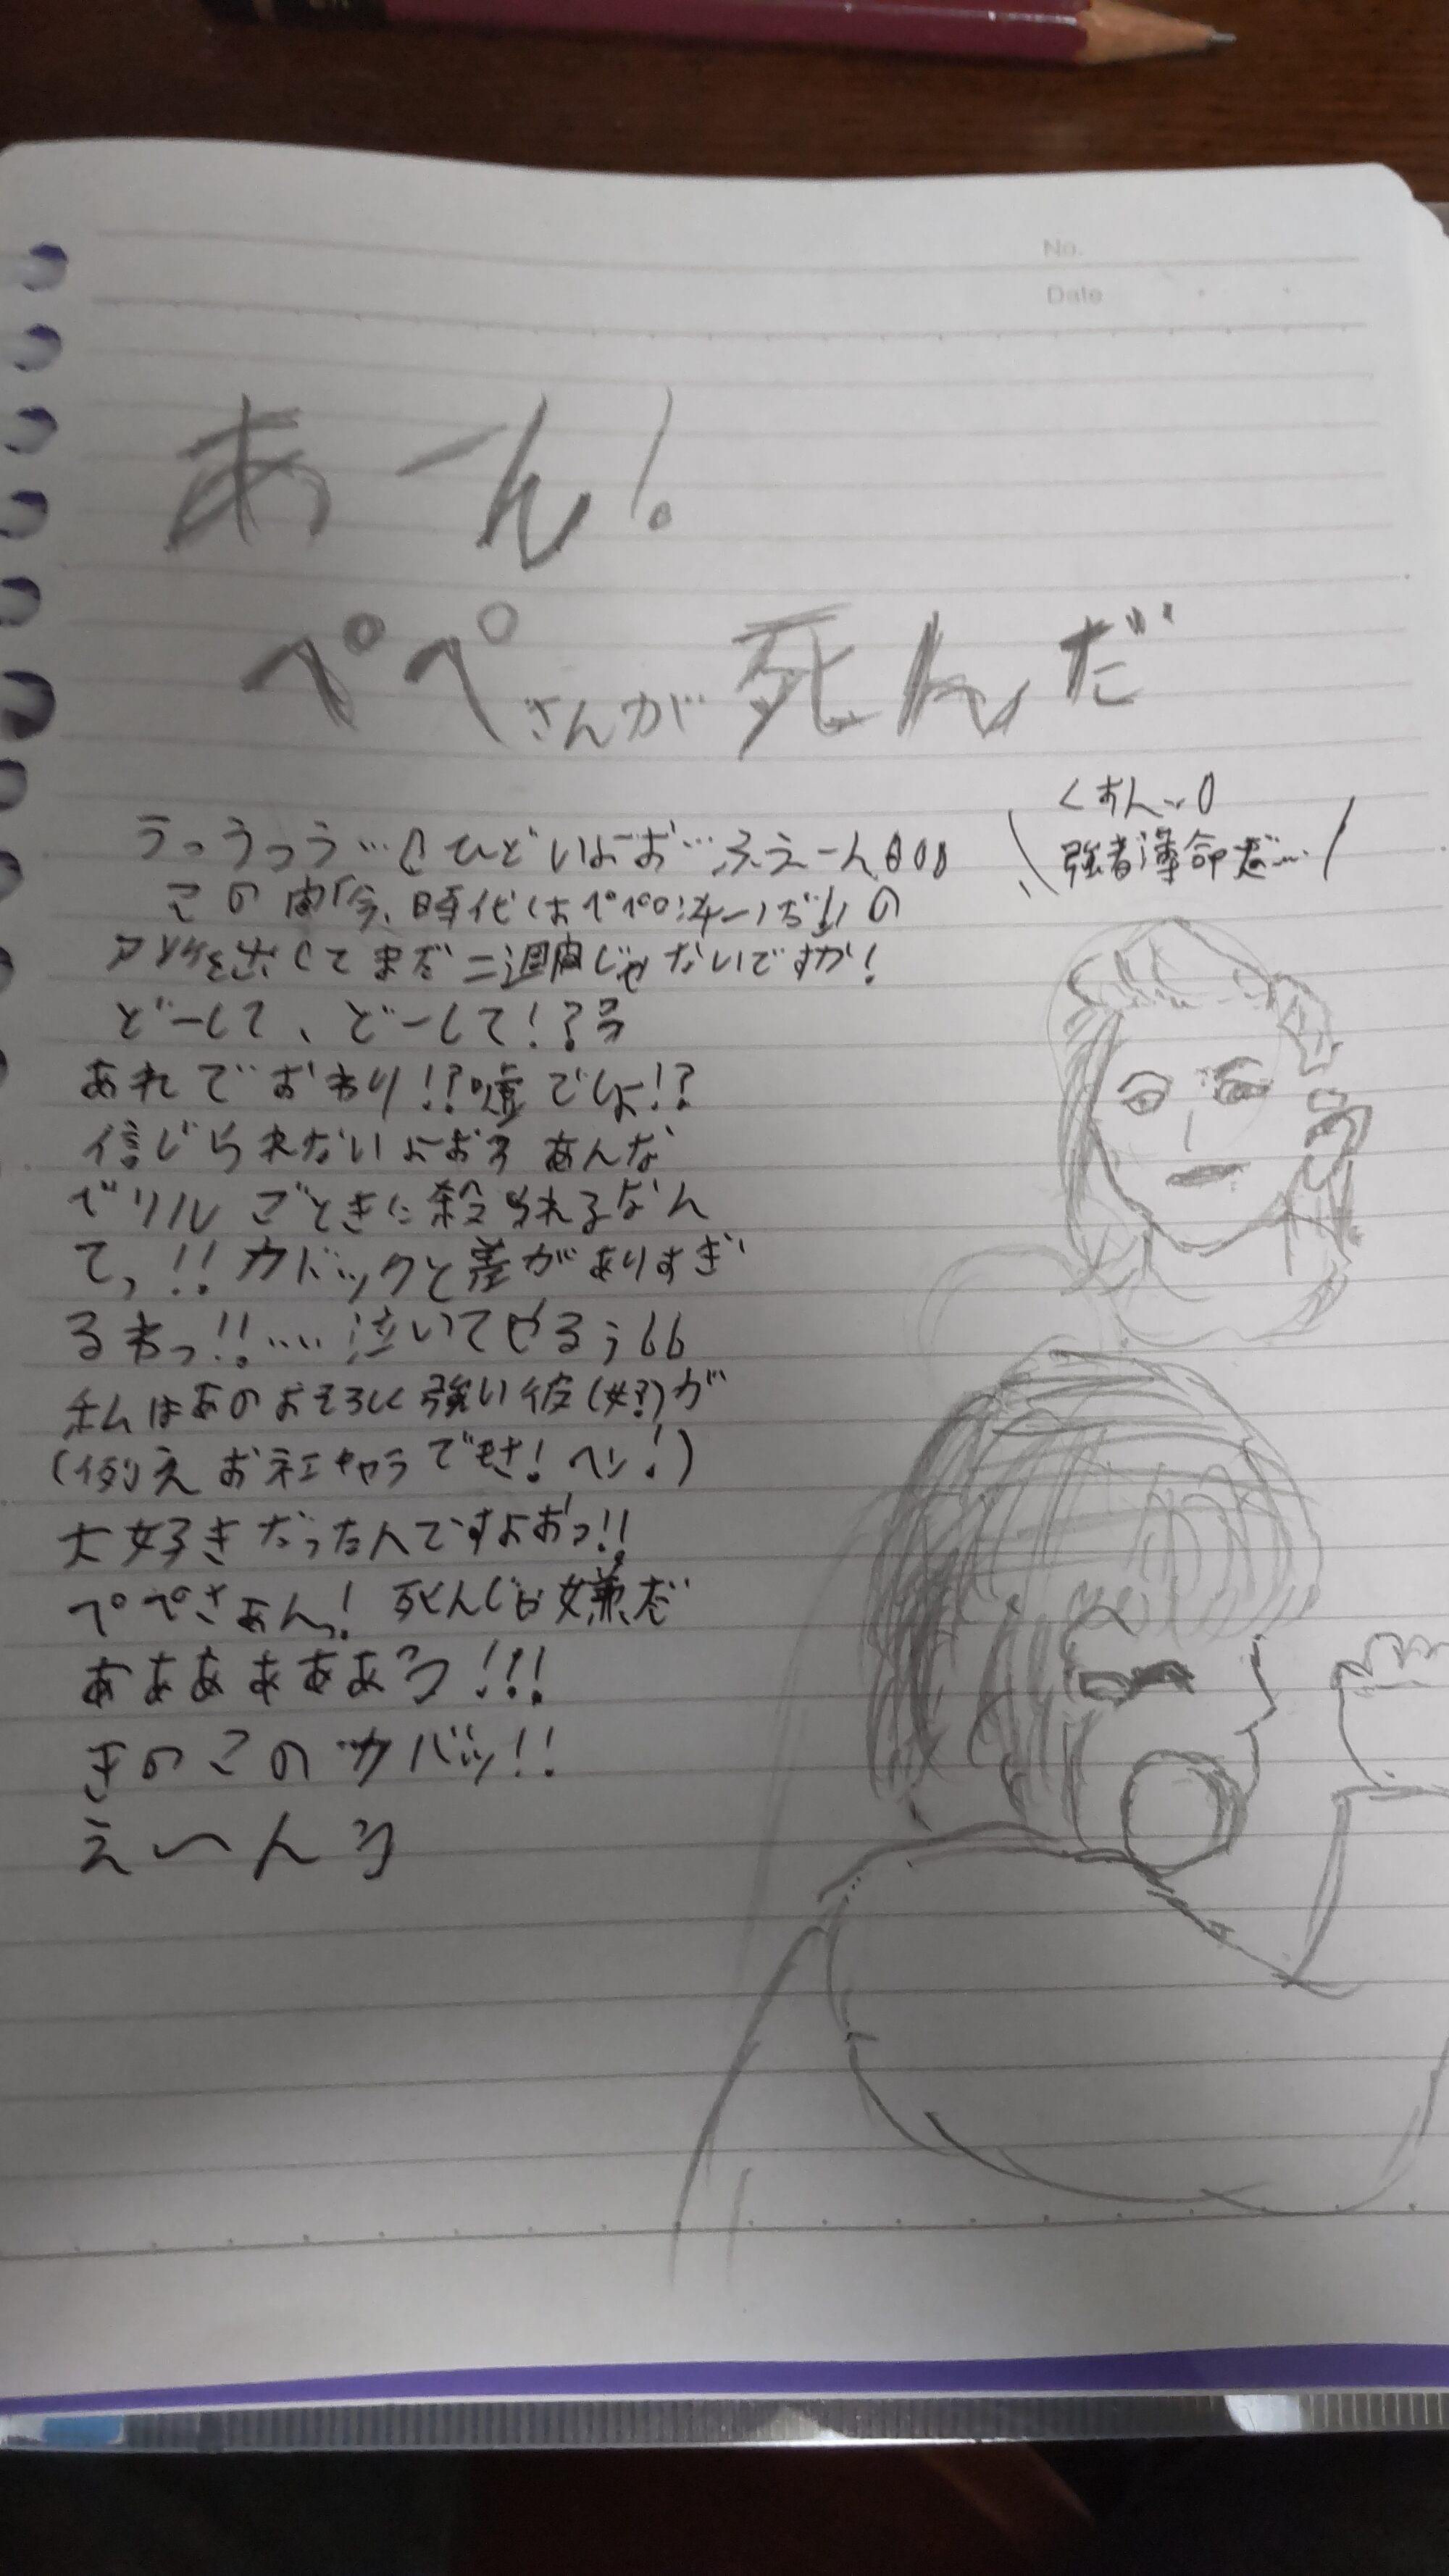 No.
Date
あーん!
ペペさんが死んだ
くすん…
強者薄命だ…
うっうっう…ひどいよお…ふえーん
この間「今、時代はペペロンチーノだ!!」の
アンケを出してまだ二週間じゃないですか!
どーして、どーして!?
あれでおわり!?嘘でしょ!?
信じられないよおぅ あんな
ベリルごときに殺られるなん
てっ!!カドックと差がありすぎ
るわっ!!…泣いてやるぅ
私はあのおそろしく強い彼(女?)が
(例えおネエキャラでもさ!ヘン!)
大好きだったんですよおっ!!
ペペさぁんっ!死んじゃ嫌だ
ああああああっ!!!
きのこのカバッ!!
え〜ん